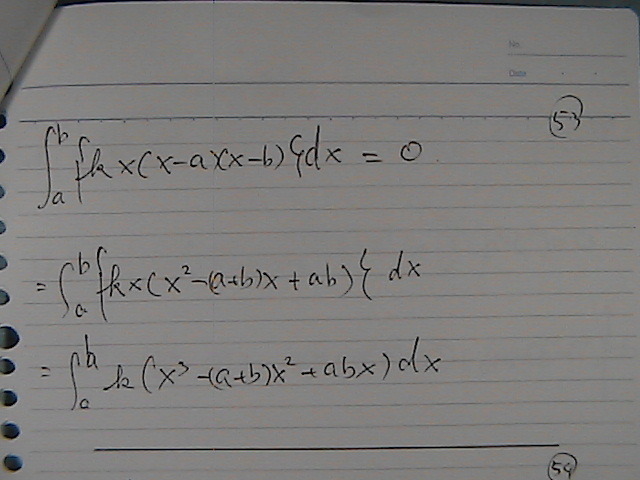 No.
Date . .
53
∫_a^b {kx(x-a)(x-b)}dx = 0.
= ∫_a^b {kx(x²-(a+b)x+ab)} dx
= ∫_a^b k(x³-(a+b)x²+abx)dx
54